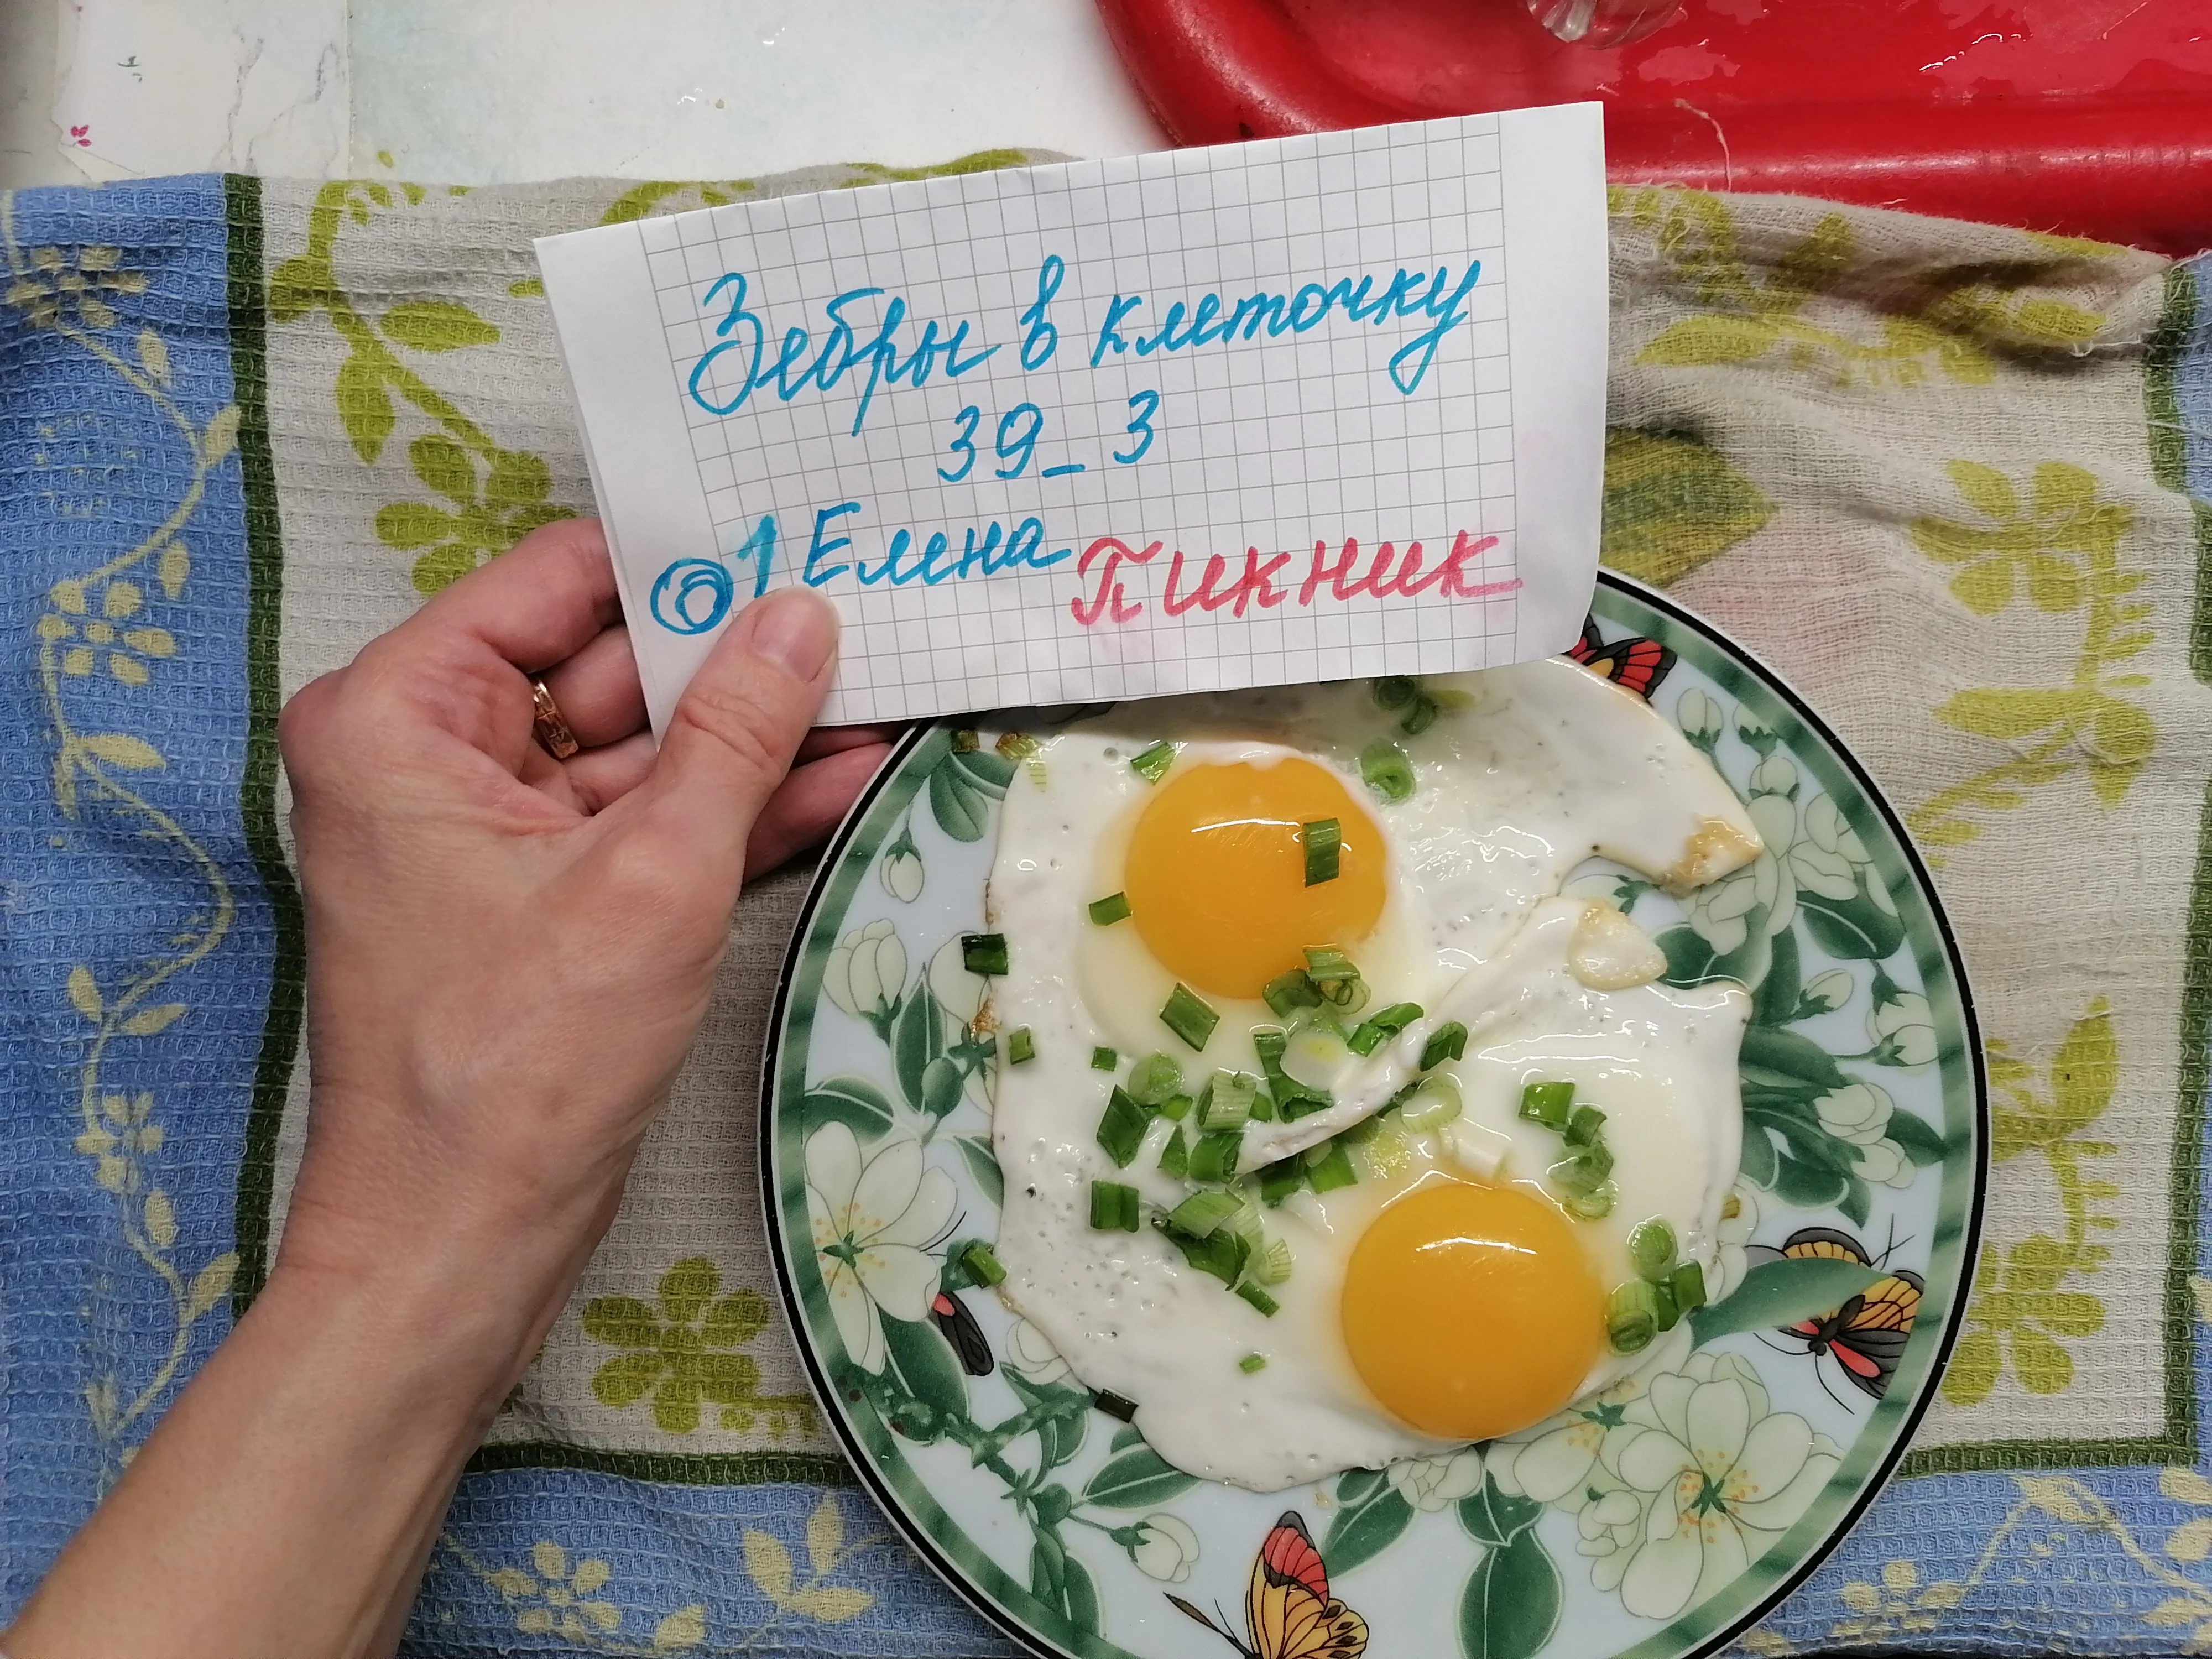 Зебры в клеточку
39_3
1 Елена Пикник